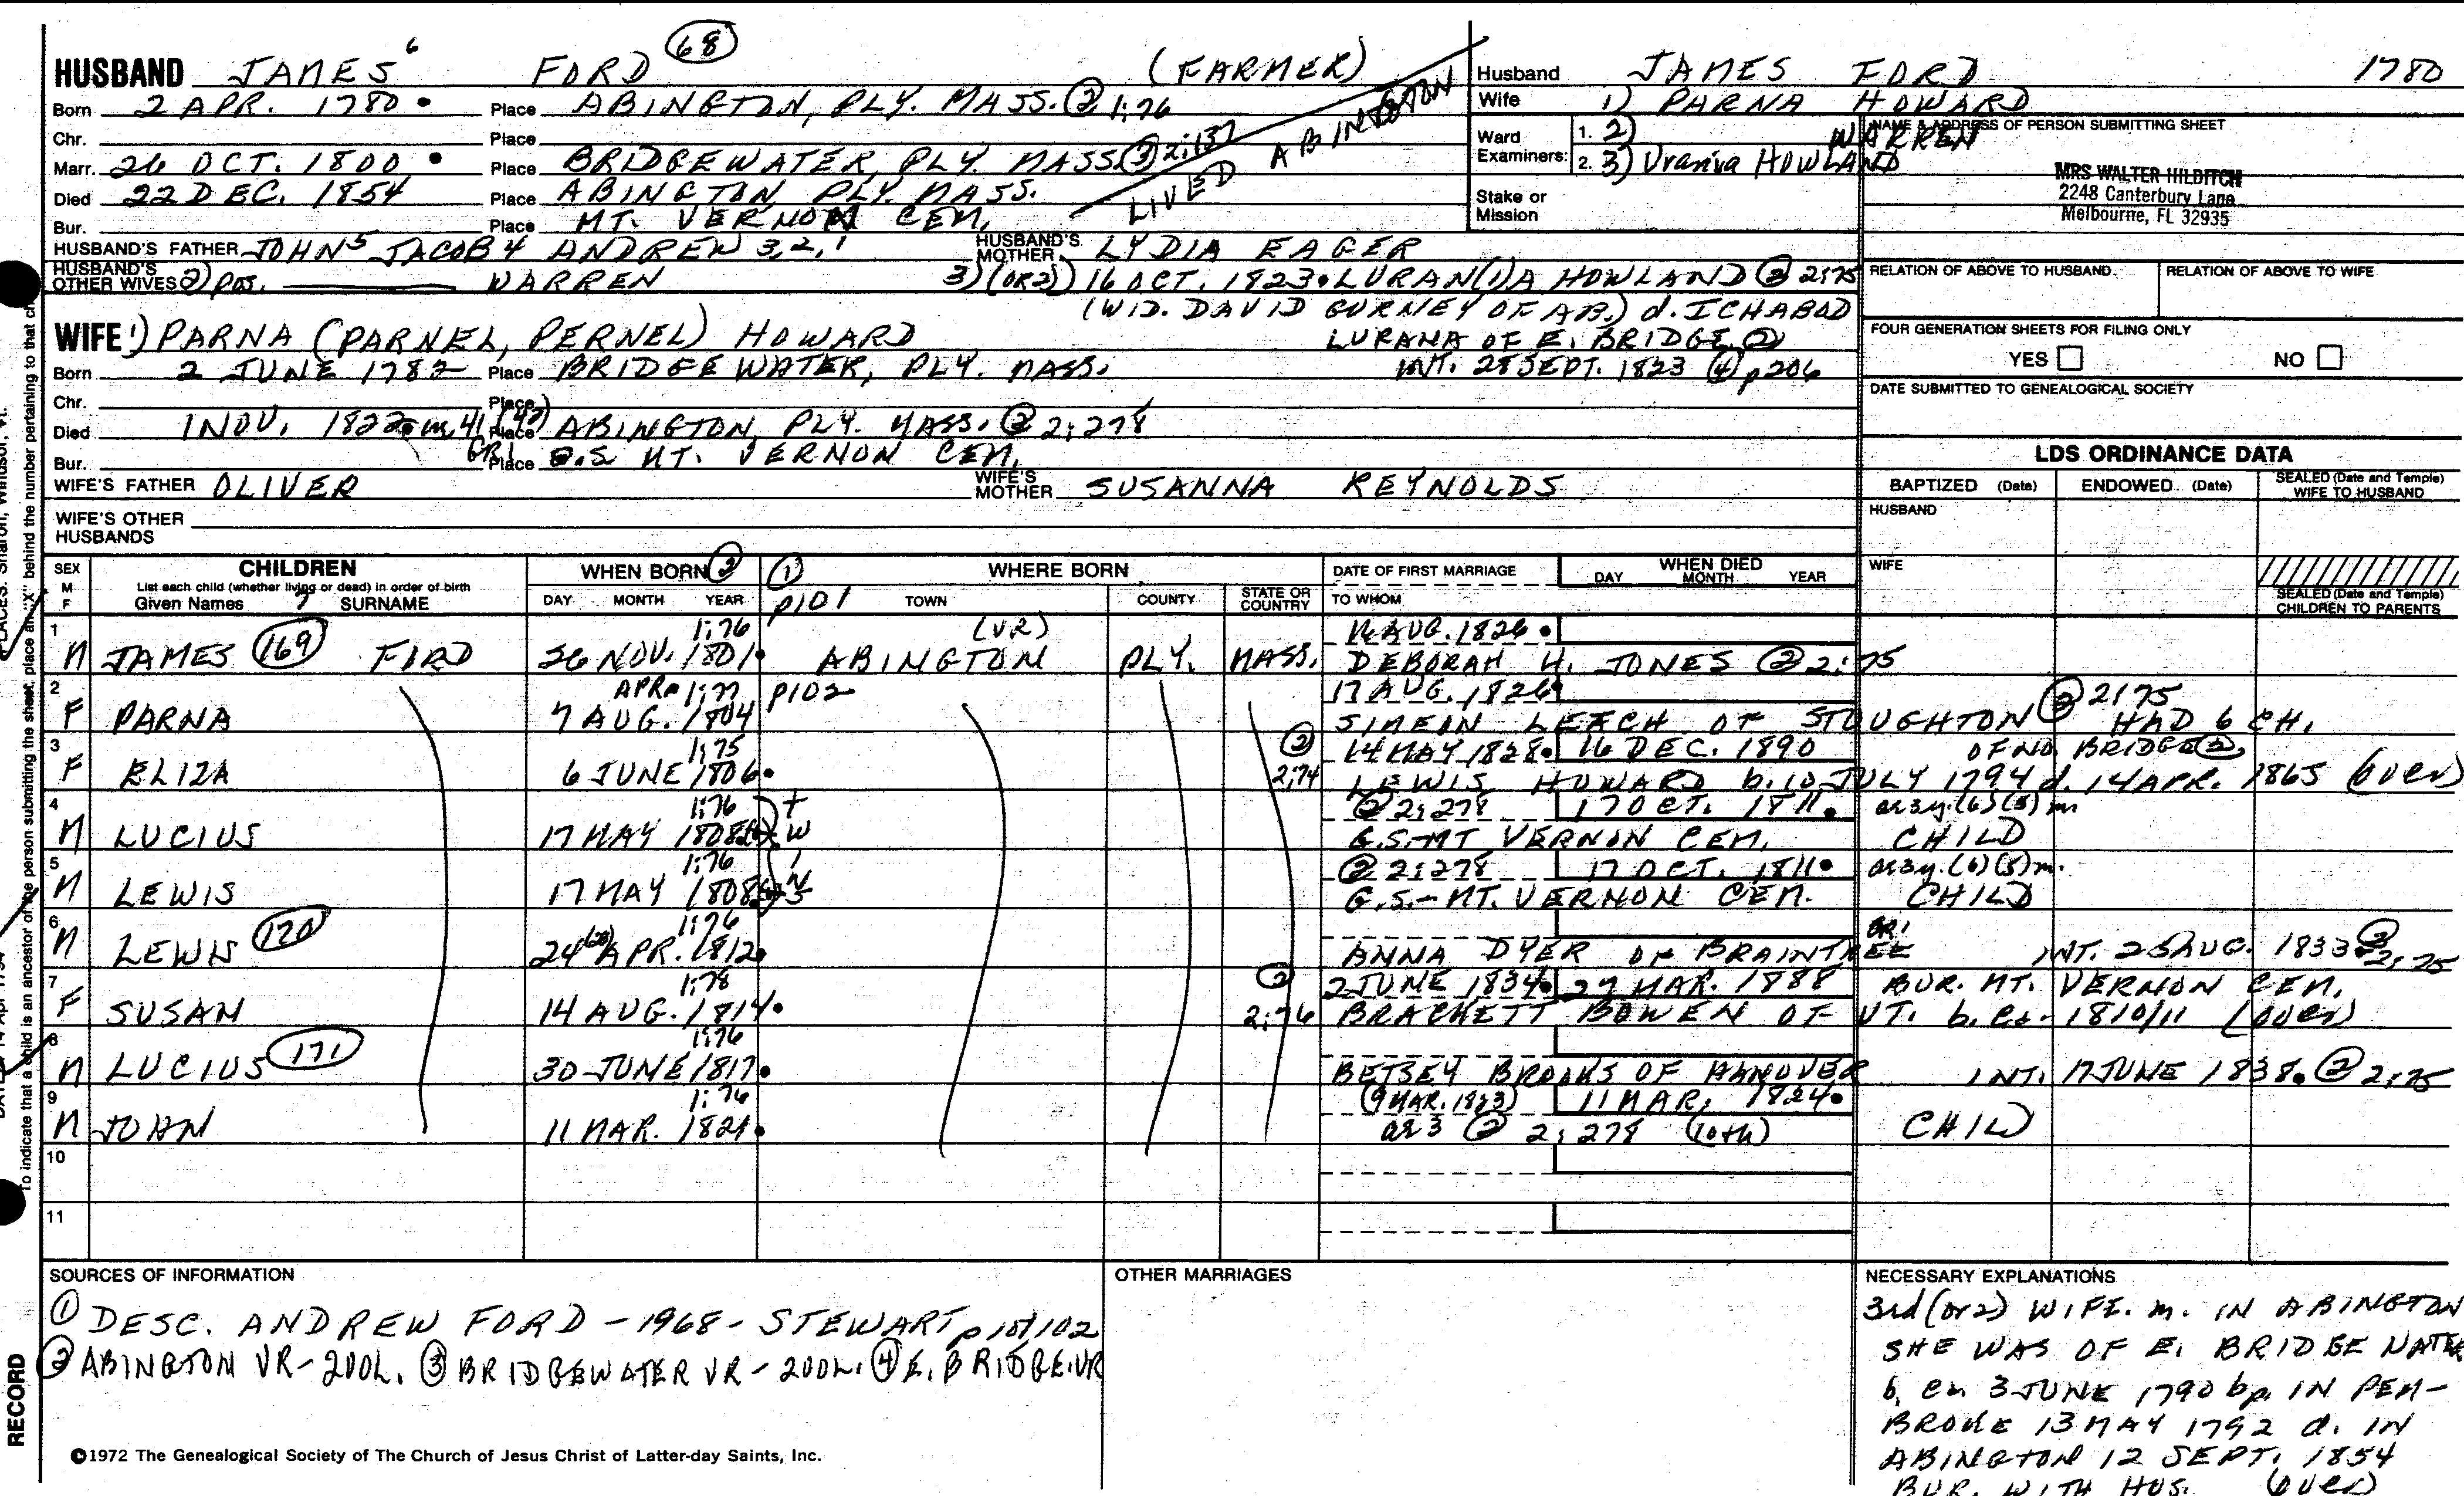 HUSBAND JAMES 6 FORD (68) (FARMER)
Born 2 APR. 1780 • Place ABINGTON, PLY. MASS. (2) 1:76
Chr. Place
Marr. 26 OCT. 1800 • Place BRIDGEWATER, PLY. MASS. (3) 2:137
LIVED ABINGTON
Died 22 DEC. 1854 Place ABINGTON PLY. MASS.
Bur. Place MT. VERNON CEM.
HUSBAND'S FATHER JOHN 5 JACOB 4 ANDREW 3,2,1 HUSBAND'S MOTHER LYDIA EAGER
HUSBAND'S OTHER WIVES 2) pos. WARREN 3) (OR 2)) 16 OCT. 1823 • LURAN(I)A HOWLAND (2) 2:75
(WID. DAVID GURNEY OF AB.) d. ICHABOD
WIFE 1) PARNA (PARNEL, PERNEL) HOWARD LURANA OF E. BRIDGE. (2)
Born 2 JUNE 1782 Place BRIDGEWATER, PLY. MASS. INT. 28 SEPT. 1823 (4) p 206
Chr. Place
Died 1 NOV. 1822 • 41 (42) Place ABINGTON, PLY. MASS. (2) 2:278
Bur. GR1 Place G.S. MT. VERNON CEM.
WIFE'S FATHER OLIVER WIFE'S MOTHER SUSANNA REYNOLDS
WIFE'S OTHER HUSBANDS
Husband JAMES FORD 1780
Wife 1) PARNA HOWARD
Ward Examiners: 1. 2) WARREN
2. 3) Urania HOWLAND
Stake or Mission
NAME & ADDRESS OF PERSON SUBMITTING SHEET
MRS WALTER HILDITCH
2248 Canterbury Lane
Melbourne, FL 32935
RELATION OF ABOVE TO HUSBAND RELATION OF ABOVE TO WIFE
FOUR GENERATION SHEETS FOR FILING ONLY
YES NO
DATE SUBMITTED TO GENEALOGICAL SOCIETY
LDS ORDINANCE DATA
BAPTIZED (Date) ENDOWED (Date) SEALED (Date and Temple) WIFE TO HUSBAND
HUSBAND
WIFE
SEALED (Date and Temple) CHILDREN TO PARENTS
SEX M F CHILDREN WHEN BORN (2) (1) WHERE BORN DATE OF FIRST MARRIAGE WHEN DIED
List each child (whether living or dead) in order of birth DAY MONTH YEAR
Given Names 7 SURNAME DAY MONTH YEAR p101 TOWN COUNTY STATE OR COUNTRY TO WHOM
1 1:76 (VR) AUG. 1826 •
M JAMES (169) FORD 26 NOV. 1801 • ABINGTON PLY. MASS. DEBORAH H. JONES (2) 2:75
2 APR • 1:77 P102 17 AUG. 1826 • (2) 2:75
F PARNA 7 AUG. 1804 SIMEIN LEACH OF STOUGHTON HAD 6 CH.
3 1:75 (2) 14 MAY 1828 • 16 DEC. 1890 OF NO. BRIDGE (2)
F ELIZA 6 JUNE 1806 • 2:74 LEWIS HOWARD b. 10 JULY 1794 d. 14 APR. 1865 (over)
4 1:76 (2) 2:278 17 OCT. 1811 • ae 3y. (6) (5) m
M LUCIUS 17 MAY 1808 G.S.-MT VERNON CEM. CHILD
5 1:76 (2) 2:278 17 OCT. 1811 • ae 3y. (6) (5) m.
M LEWIS 17 MAY 1808 G.S.-MT. VERNON CEM. CHILD
6 1:76 GR1
M LEWIS (170) 24 (28) APR. 1812 • ANNA DYER OF BRAINTREE INT. 25 AUG. 1833 • (2) 2:75
7 1:78 (2) 2 JUNE 1834 • 27 MAR. 1888 BUR. MT. VERNON CEM.
F SUSAN 14 AUG. 1814 • 2:76 BRACKETT BOWEN OF VT. b. ca. 1810/11 (over)
8 1:76
M LUCIUS (171) 30 JUNE 1817 • BETSEY BROOKS OF HANOVER INT. 17 JUNE 1838 • (2) 2:75
9 1:76 (9 MAR. 1823) 11 MAR. 1824 •
M JOHN 11 MAR. 1821 • ae 3 (2) 2:278 (10th) CHILD
10
11
SOURCES OF INFORMATION
(1) DESC. ANDREW FORD - 1968 - STEWART p 101/102
(2) ABINGTON VR - 2VOL. (3) BRIDGEWATER VR - 2VOL. (4) E. BRIDGE. VR
OTHER MARRIAGES
NECESSARY EXPLANATIONS
3rd (or 2) WIFE. m. IN ABINGTON
SHE WAS OF E. BRIDGEWATER
b. ca 3 JUNE 1790 bp. IN PEM-
BROKE 13 MAY 1792 d. IN
ABINGTON 12 SEPT. 1854
BUR. WITH HUS. (over)
©1972 The Genealogical Society of The Church of Jesus Christ of Latter-day Saints, Inc.
To indicate that a child is an ancestor of the person submitting the sheet, place an "X" behind the number pertaining to that
RECORD